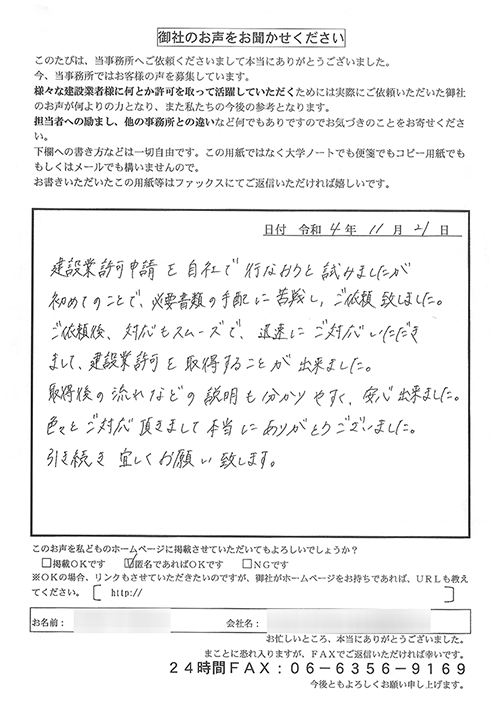 御社のお声をお聞かせください
このたびは、当事務所へご依頼くださいまして本当にありがとうございました。
今、当事務所ではお客様の声を募集しています。
様々な建設業者様に何とか許可を取って活躍していただくためには実際にご依頼いただいた御社
のお声が何よりの力となり、また私たちの今後の参考となります。
担当者への励まし、他の事務所との違いなど何でもありですのでお気づきのことをお寄せくださ
い。
下欄への書き方などは一切自由です。この用紙ではなく大学ノートでも便箋でもコピー用紙でも
もしくはメールでも構いませんので。
お書きいただいたこの用紙等はファックスにてご返信いただければ嬉しいです。
日付 令和 4 年 11 月 21 日
建設業許可申請を自社で行なおうと試みましたが
初めてのことで、必要書類の手配に苦戦し、ご依頼致しました。
ご依頼後、対応もスムーズで、迅速にご対応いただき
まして、建設業許可を取得することが出来ました。
取得後の流れなどの説明も分かりやすく、安心出来ました。
色々とご対応頂きまして本当にありがとうございました。
引き続き宜しくお願い致します。
このお声を私どものホームページに掲載させていただいてもよろしいでしょうか?
□掲載OKです ☑匿名であればOKです □NGです
※OKの場合、リンクもさせていただきたいのですが、御社がホームページをお持ちであれば、URLも教え
てください。〔 http:// 〕
お名前: 会社名:
お忙しいところ、本当にありがとうございました。
まことに恐れ入りますが、FAXでご返信いただければ幸いです。
24時間FAX:06-6356-9169
今後ともよろしくお願い申し上げます。